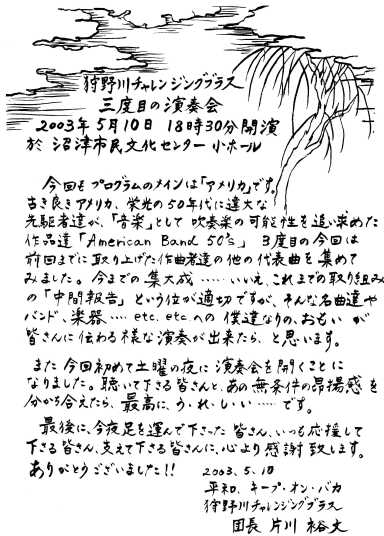 狩野川チャレンジングブラス
三度目の演奏会
2003年5月10日 18時30分開演
於 沼津市民文化センター小ホール
今回も プログラムのメインは「アメリカ」です。
古き良きアメリカ、栄光の50年代に偉大な
先駆者達が、「音楽」として 吹奏楽の可能性を追い求めた
作品達「American Band 50's」 3度目の今回は
前回までに取り上げた作曲者達の他の代表曲を集めて
みました。今までの集大成……いいえ、これまでの取り組み
の「中間報告」という位が適切ですが、そんな名曲達や
バンド、楽器…. etc. etc への 僕達なりの、おもい が
皆さんに伝わる様な演奏が出来たら、と思います。
また今回初めて土曜の夜に 演奏会を開くことに
なりました。聴いて下さる皆さんと、あの無条件の昂揚感を
分かち合えたら、最高に、う・れ・し・い……です。
最後に、今夜足を運んで下さった 皆さん、いつも応援して
下さる皆さん、支えて下さる皆さんに、心より感謝致します。
ありがとうございました!!
2003. 5. 10
平和、キープ・オン・バカ
狩野川チャレンジングブラス
団長 片川 裕丈